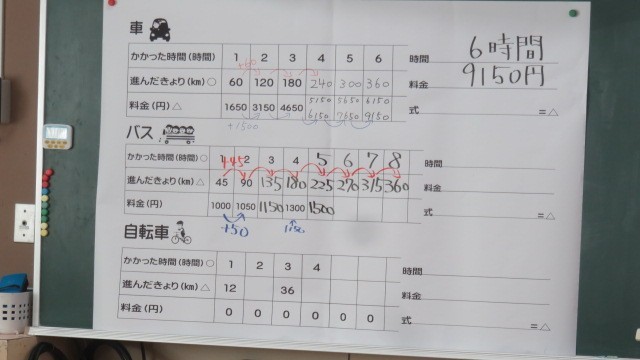 車
かかった時間(時間) 1 2 3 4 5 6 時間 6時間
進んだきょり(km)○ 60 120 180 240 300 360 料金 9150円
料金(円)△ 1650 3150 4650 5150 5650 6150 式 =△
6150 7650 9150
+1500
バス
かかった時間(時間)○ 1 2 3 4 5 6 7 8 時間
+45
進んだきょり(km)△ 45 90 135 180 225 270 315 360 料金
料金(円) 1000 1050 1150 1300 1500 式 =△
+50
自転車
かかった時間(時間)○ 1 2 3 4 時間
進んだきょり(km)△ 12 36 料金
料金(円) 0 0 0 0 0 0 式 =△